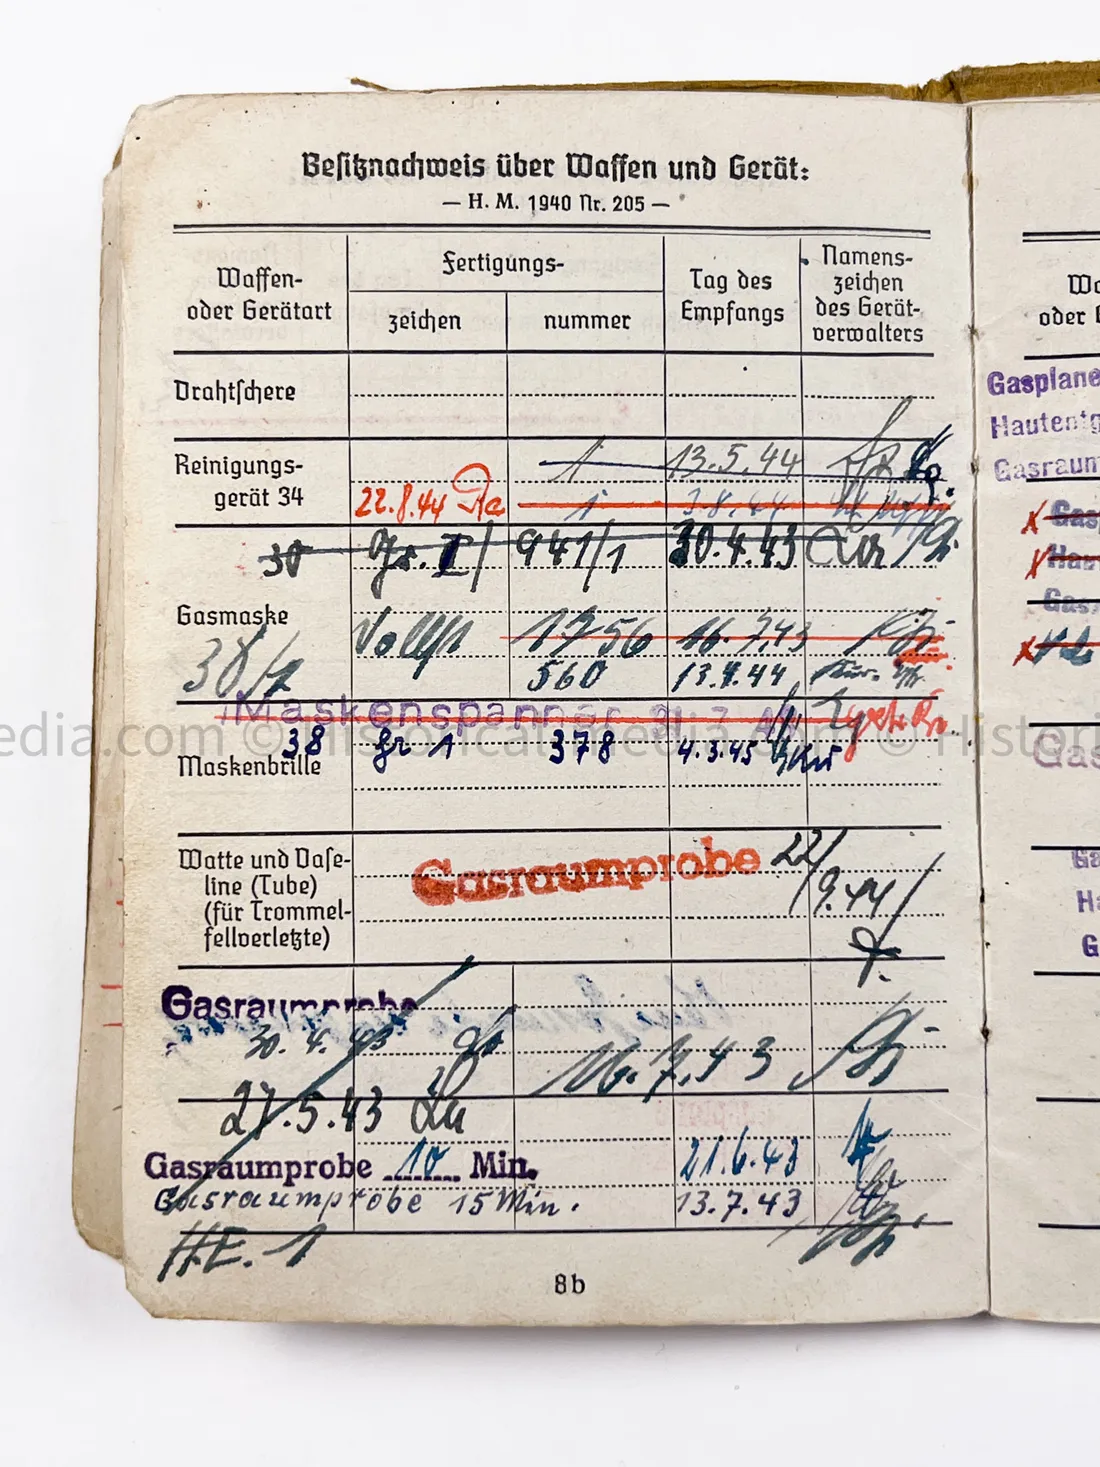 Besitznachweis über Waffen und Gerät:
— H. M. 1940 Nr. 205 —
Waffen- oder Gerätart
Fertigungs-
zeichen
nummer
Tag des Empfangs
Namens- zeichen des Gerät- verwalters
Drahtschere
Reinigungs- 1 13.5.44
gerät 34 22.8.44 1 3.8.44
30 Gr. II/ 941/1 30.4.43
Gasmaske 1756 16.7.43
38/2 560 13.4.44
Maskenspanner
38 Gr 1 378 4.3.45
Maskenbrille
Watte und Vase-
line (Tube)
(für Trommel-
fellverletzte)
Gasraumprobe 22/
9.44
Gasraumprobe
30. 4. 43 16.7.43
27.5.43
Gasraumprobe 10 Min. 21.6.43
Gasraumprobe 15 Min. 13.7.43
H.E. 1
8b
Wa
oder G
Gasplane
Hautentg
Gasraum
Gas
Hau
Gas
Gas
Ga
Ha
G
edia.com © Historicalmedia.com © Histori